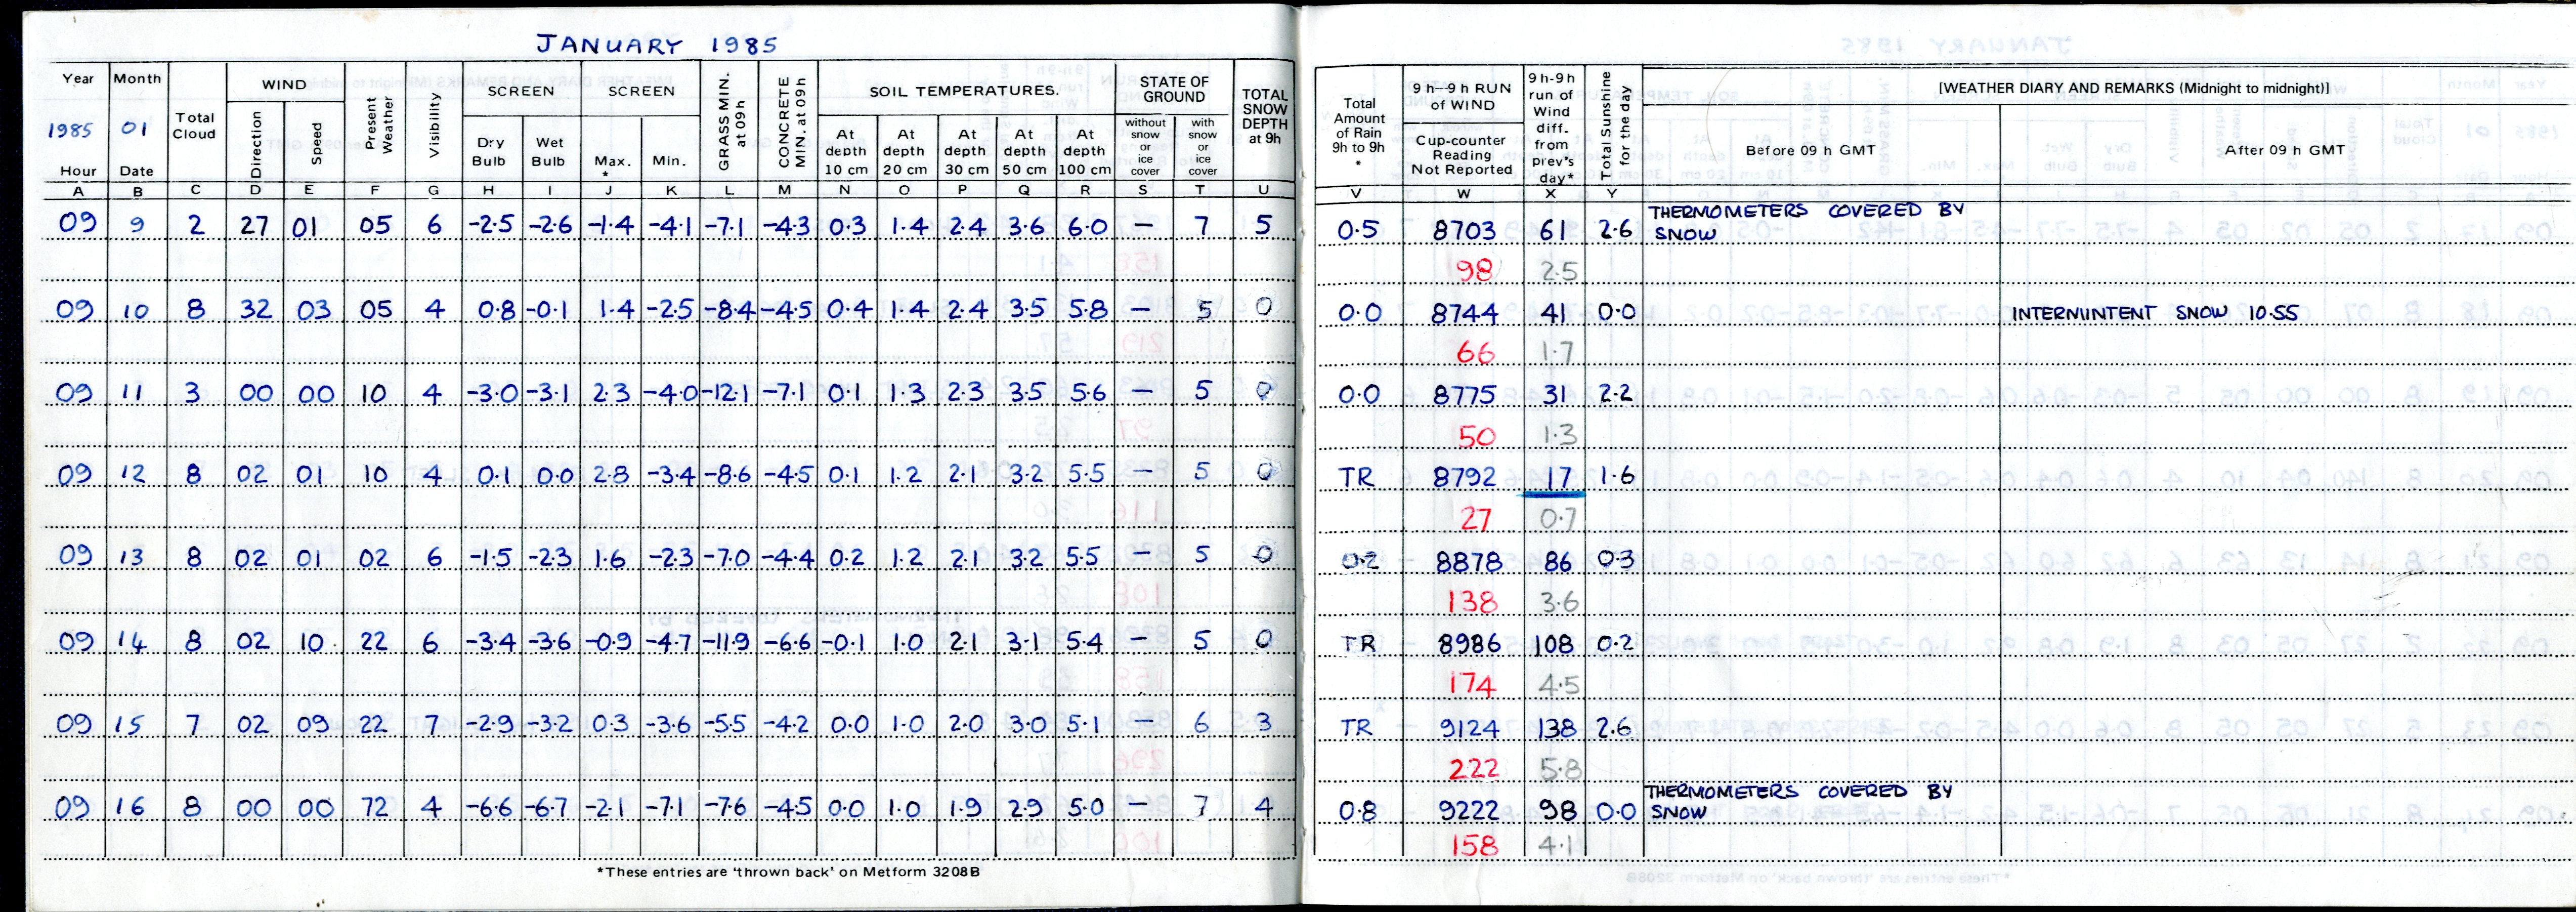 JANUARY 1985
Year Month Total Cloud WIND Present Weather Visibility SCREEN SCREEN GRASS MIN. at 09h CONCRETE MIN. at 09h SOIL TEMPERATURES. STATE OF GROUND TOTAL SNOW DEPTH at 9h Total Amount of Rain 9h to 9h * 9h–9h RUN of WIND 9h-9h run of Wind diff. from prev's day* Total Sunshine for the day [WEATHER DIARY AND REMARKS (Midnight to midnight)]
1985 01 Direction Speed Dry Bulb Wet Bulb Max. * Min. At depth 10 cm At depth 20 cm At depth 30 cm At depth 50 cm At depth 100 cm without snow or ice cover with snow or ice cover Cup-counter Reading Not Reported Before 09 h GMT After 09 h GMT
Hour Date
A B C D E F G H I J K L M N O P Q R S T U V W X Y
09 9 2 27 01 05 6 -2.5 -2.6 -1.4 -4.1 -7.1 -4.3 0.3 1.4 2.4 3.6 6.0 — 7 5 0.5 8703 61 2.6 THERMOMETERS COVERED BY
SNOW
98 2.5
09 10 8 32 03 05 4 0.8 -0.1 1.4 -2.5 -8.4 -4.5 0.4 1.4 2.4 3.5 5.8 — 5 0 0.0 8744 41 0.0 INTERMINTENT SNOW 10.55
66 1.7
09 11 3 00 00 10 4 -3.0 -3.1 2.3 -4.0 -12.1 -7.1 0.1 1.3 2.3 3.5 5.6 — 5 0 0.0 8775 31 2.2
50 1.3
09 12 8 02 01 10 4 0.1 0.0 2.8 -3.4 -8.6 -4.5 0.1 1.2 2.1 3.2 5.5 — 5 0 TR 8792 17 1.6
27 0.7
09 13 8 02 01 02 6 -1.5 -2.3 1.6 -2.3 -7.0 -4.4 0.2 1.2 2.1 3.2 5.5 — 5 0 0.2 8878 86 0.3
138 3.6
09 14 8 02 10 22 6 -3.4 -3.6 -0.9 -4.7 -11.9 -6.6 -0.1 1.0 2.1 3.1 5.4 — 5 0 TR 8986 108 0.2
174 4.5
09 15 7 02 09 22 7 -2.9 -3.2 0.3 -3.6 -5.5 -4.2 0.0 1.0 2.0 3.0 5.1 — 6 3 TR 9124 138 2.6
222 5.8
09 16 8 00 00 72 4 -6.6 -6.7 -2.1 -7.1 -7.6 -4.5 0.0 1.0 1.9 2.9 5.0 — 7 4 0.8 9222 98 0.0 THERMOMETERS COVERED BY
SNOW
158 4.1
*These entries are 'thrown back' on Metform 3208B